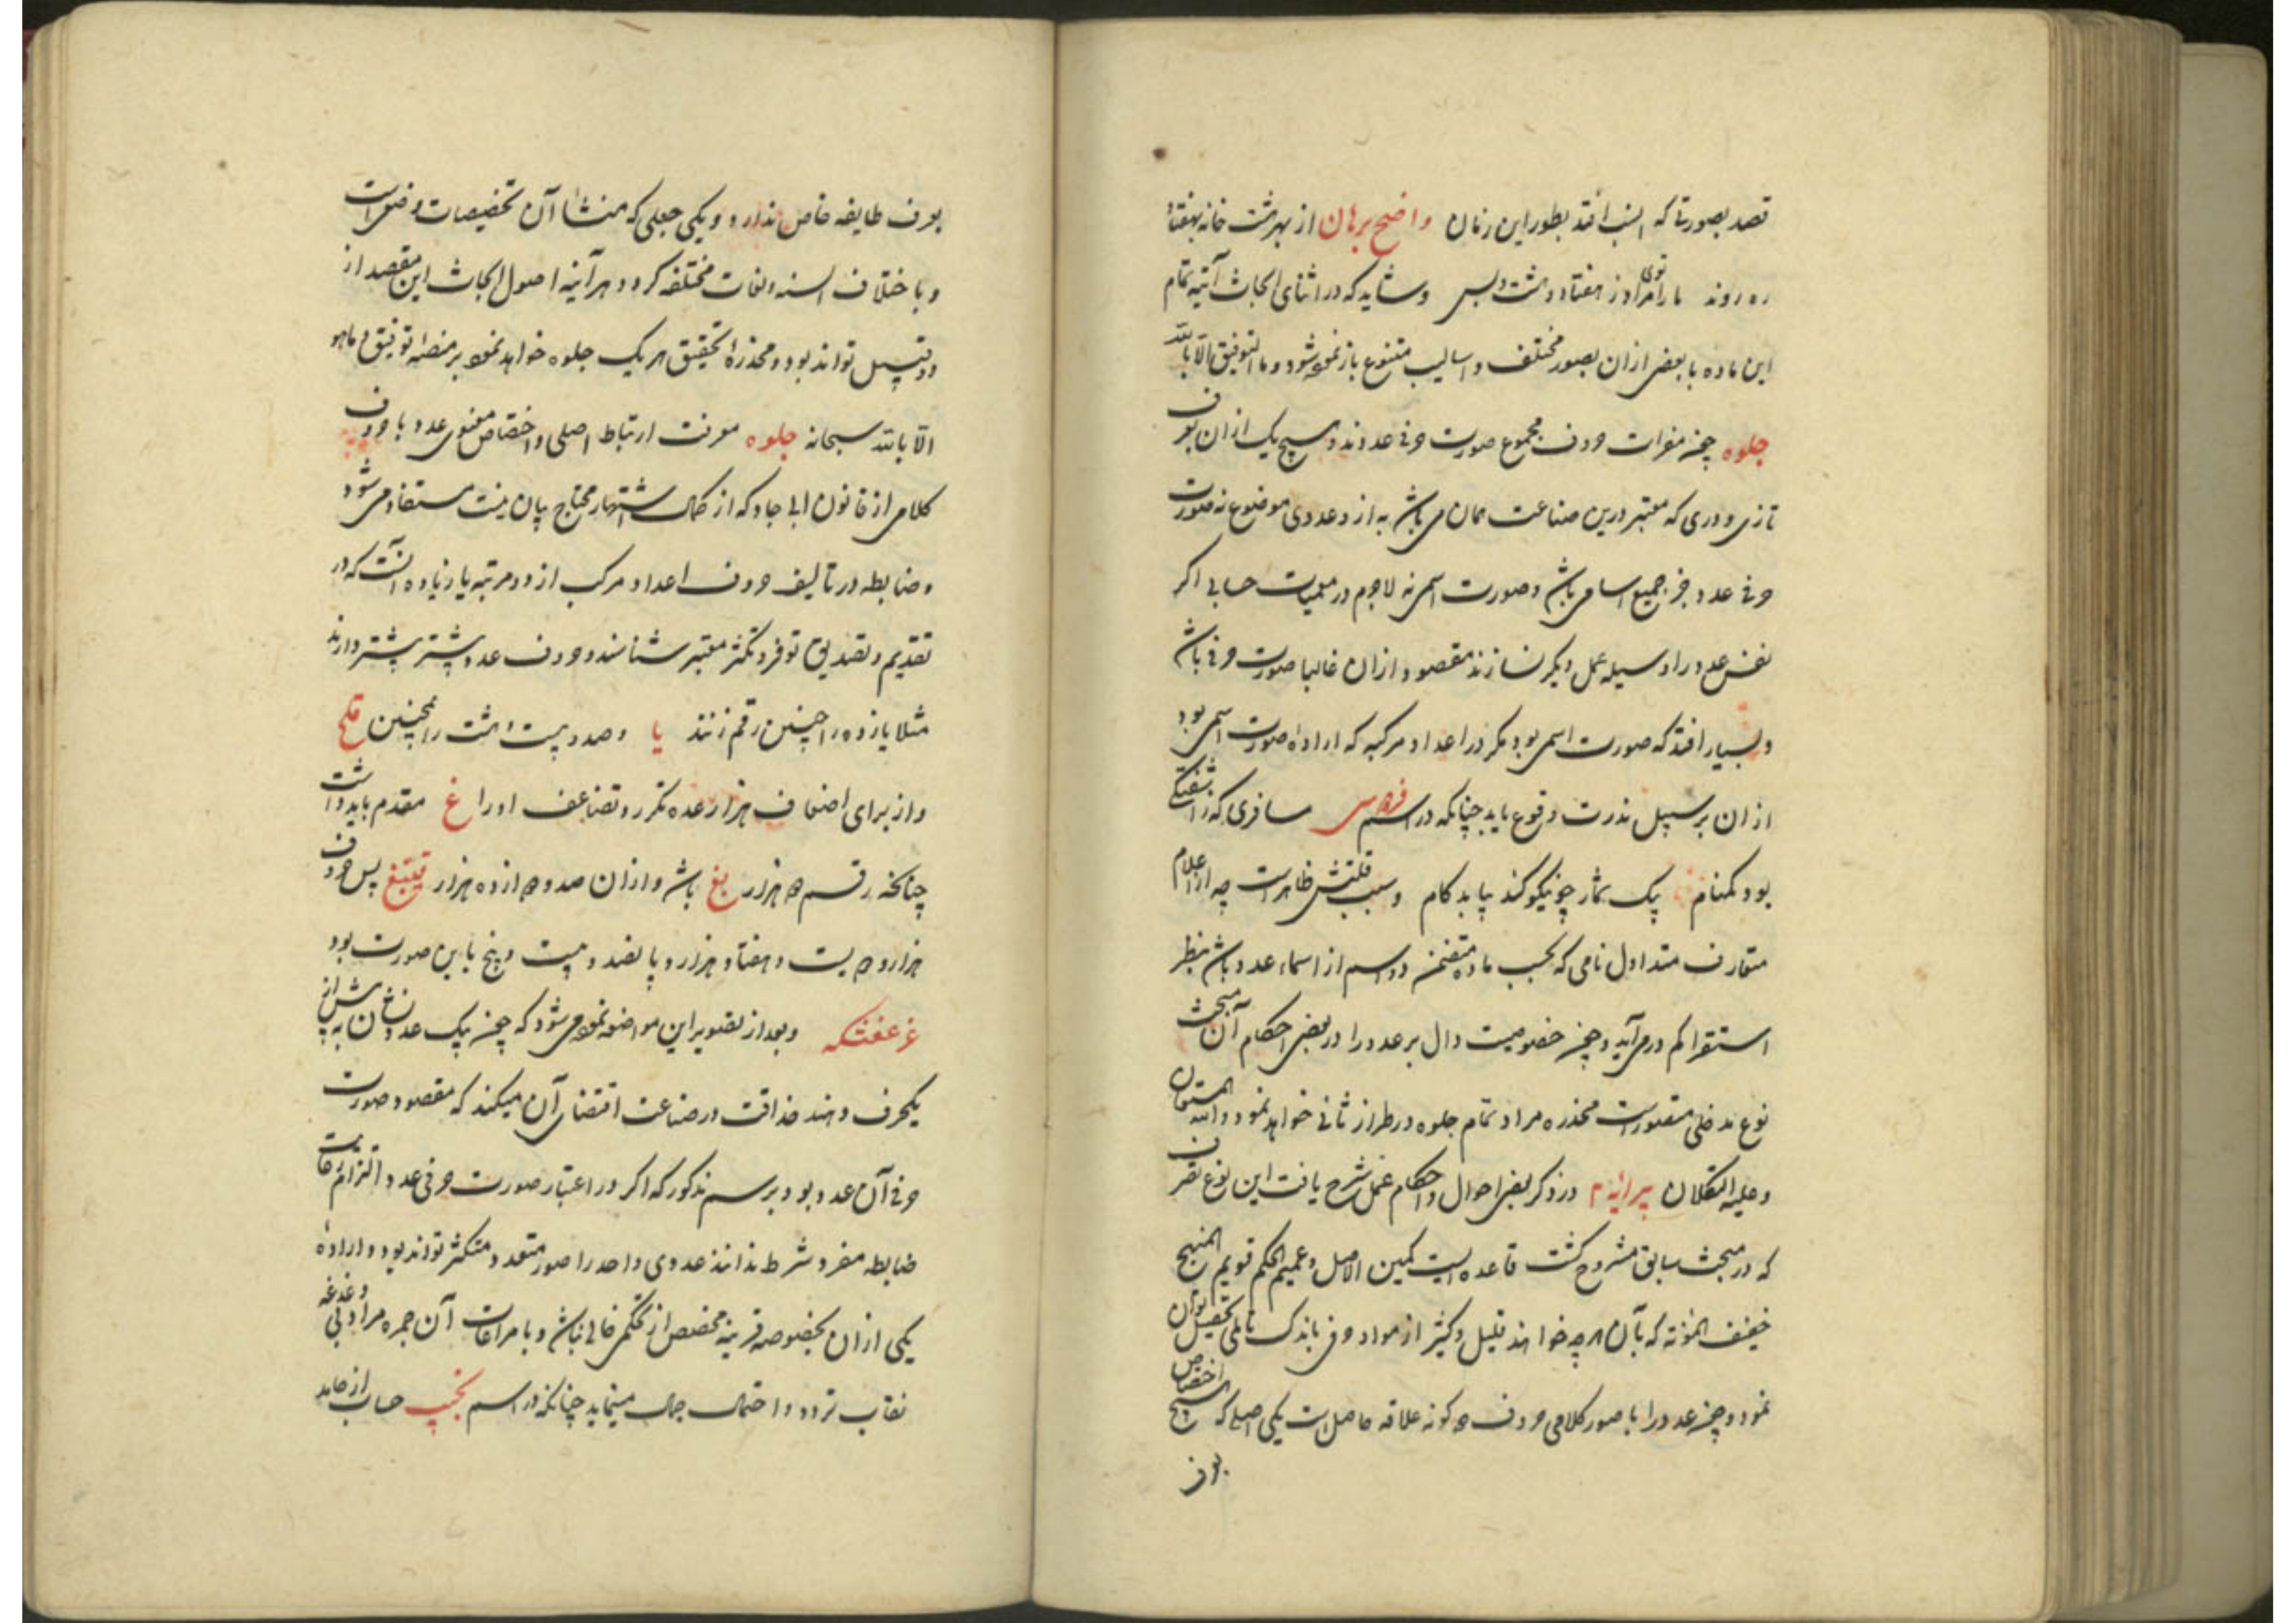 قصد بصورتی که انسب افتد بطور این زمان واضح برهان از بهر هشت خانه بهفتاد
ره روند ما را توی مراد ز هفتاد و هشت و بس و شاید که در اثنای ابحاث آتیه تمام
این ماده با بعضی ازان بصور مختلف و اسالیب متنوع باز نموده شود و ما التوفیق الا بالله
جلوه چون مفرات حروف مجموع صورت حرفی عددند و هیچ یک ازان بعرف
تازی و دری که معتبر درین صناعت همان می باشد به ازو عددی موضوع نه صورت
حرفی عدد جز جمیع اسامی باشد و صورت اسمی نه لاجرم در معمیات حسابی اکر
نفس عدد را وسیله عمل دیکر نسازند مقصود ازان غالبا صورت حرفی باشد
و بسیار افتد که صورت اسمی بود مکر در اعداد مرکبه که اراده صورت اسمی بود
ازان بر سبیل ندرت وقوع یابد چنانکه در اسم مسافری که ز آشفتکی
بود کمنام پیک شمار چو نیکو کند بیابد کام و سبب قلتش ظاهرست چه از اعلام
متعارف متداول نامی که بحسب ماده متضمن دو اسم از اسماء عدد باشد بنظر
استقرا کم در می آید و چون خصوصیت دال بر عدد را در بعضی احکام آن مبحث
نوع مدخلی متصورست مخدره مراد تمام جلوه در طراز ثانی خواهد نمود والله المستعان
و علیه التکلان پیرایه دوم در ذکر بعضی احوال و احکام عمل شرح یافت این نوع تصرف
که در مبحث سابق مشروح کشت قاعده ایست کمین الاصل و عمیم الحکم قویم المنهج
خفیف المؤنه که بآن هر چه خواهند قلیل و کثیر از مواد حرفی باندک تاملی تحصیل توان
نمود و چون عدد را با صور کلامی حروف دو کونه علاقه حاصل است یکی اصلی که اختصاص هیچ
بعرف
بعرف طایفه خاص ندارد و یکی جعلی که منشأ آن تخصیصات وضعی است
و باختلاف السنه و لغات مختلفه کردد هر آینه اصول ابحاث این مقصد از
دو قبیل تواند بود و مخدره تحقیق هر یک جلوه خواهد نمود بر منصه توفیق و ما هو
الا بالله سبحانه جلوه معرفت ارتباط اصلی و اختصاص معنوی عدد با حروف
کلامی از قانون ابی جاد که از کمال اشتهار محتاج بیان نیست مستفاد می شود
و ضابطه در تالیف حروف اعداد مرکب از دو مرتبه یا زیاده آنست که در
تقدیم و تصدیق توفر و تکثر معتبر شناسند و حروف عدد بیشتر پیشتر دارند
مثلا یازده را چنین رقم زنند یا و صد و بیست و هشت را همچنین قکح
و از برای اضعاف هزار عده تکرر و تضاعف او را غ مقدم باید داشت
چنانکه رقم دو هزار بغ باشد و ازان صد و دوازده هزار قیبغ پس حروف
هزار و دویست و هفتاد هزار و پانصد و بیست و پنج باین صورت بود
غرعغثکه و بعد از تصویر این مواضعه نموده می شود که چون بیک عدد نشان به
یکحرف دهند حذاقت در صناعت اقتضای آن میکند که مقصود صورت
حرفی آن عدد بود بر سم مذکور که اکر در اعتبار صورت حرفی عدد التزام رعایت
ضابطه مقرره شرط ندانند عددی واحد را صور متعدد و متکثر تواند بود و اراده
یکی ازان بخصوصه قرینه مخصص از تحکمی خالی نباشد و با مراعات آن چهره مراد بی دغدغه
نقاب تردد و احتمال جمال مینماید چنانکه در اسم نجیب حساب از حامد